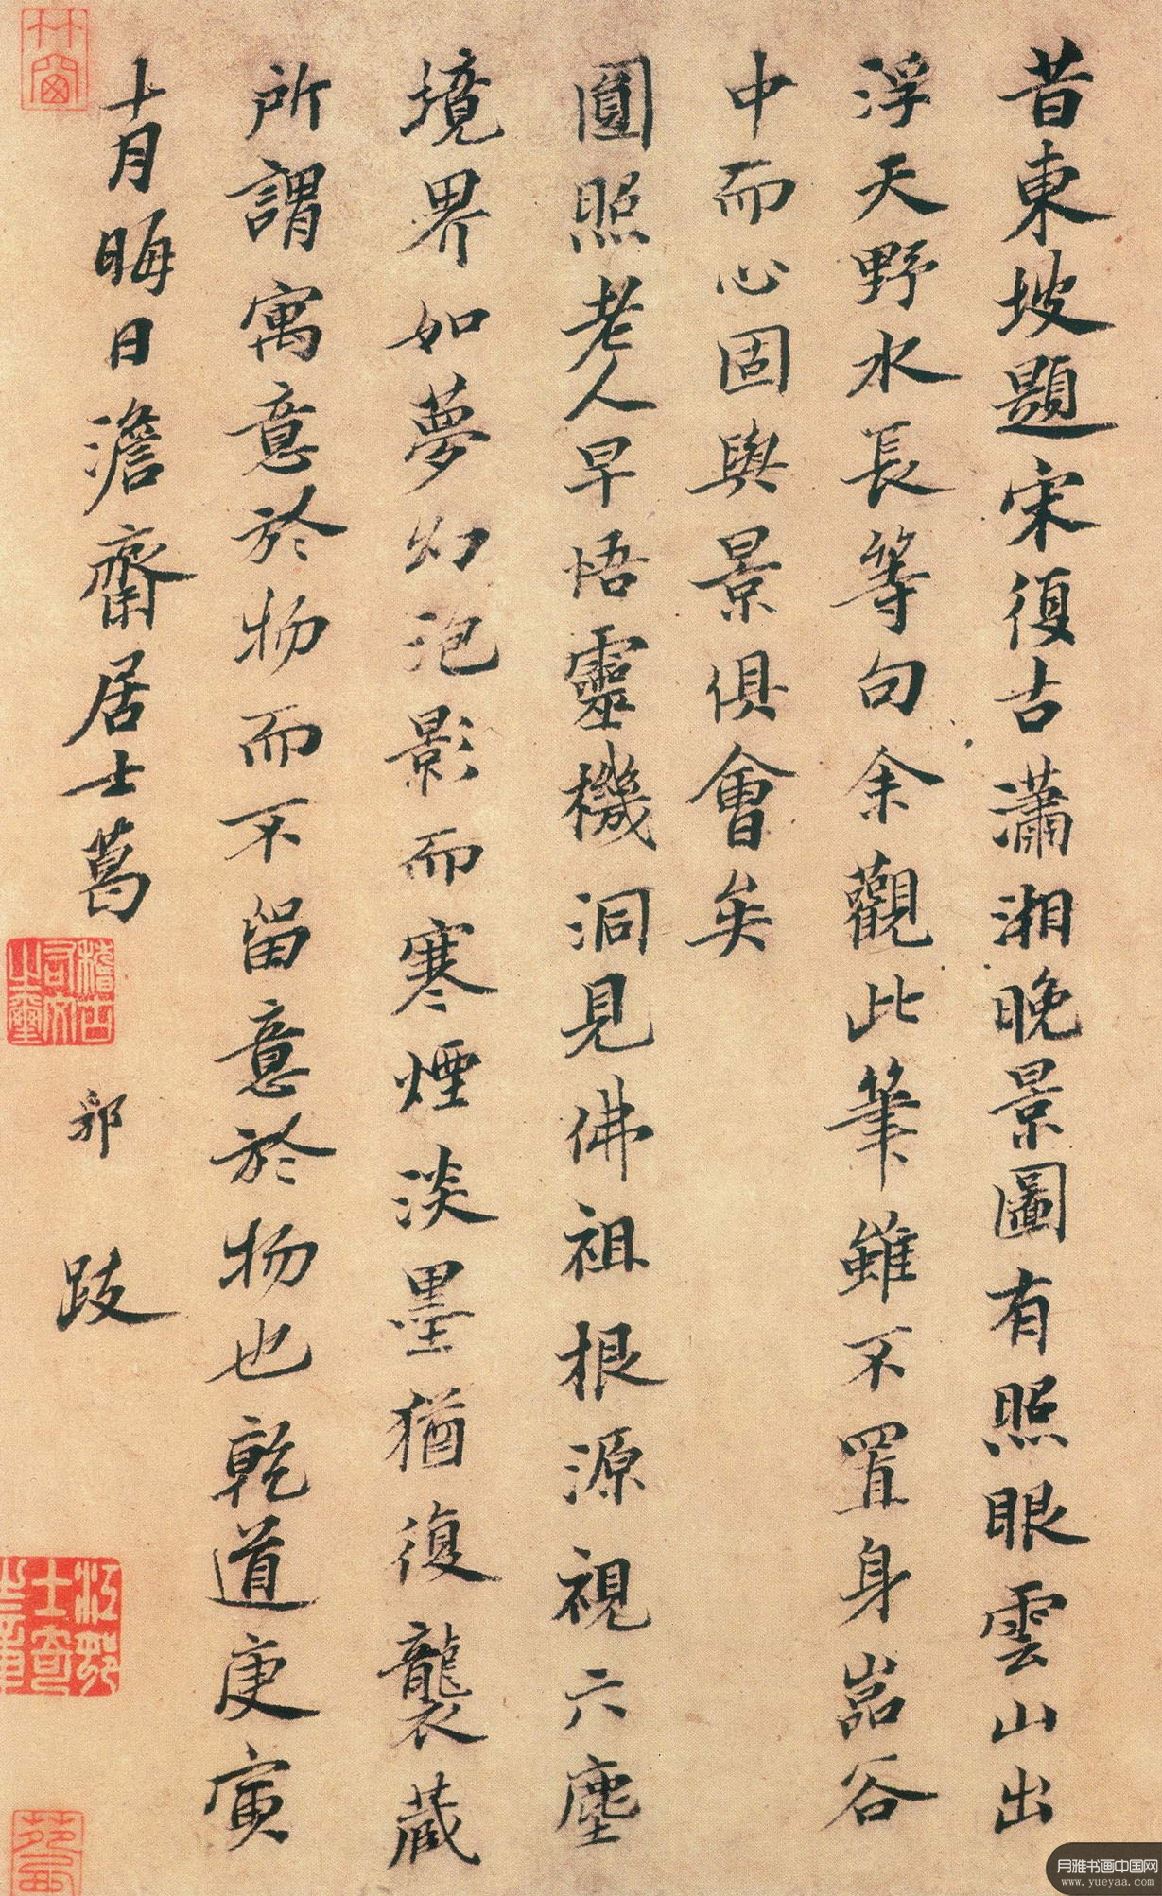 昔東坡題宋復古瀟湘晚景圖有照眼雲山出
浮天野水長等句余觀此筆雖不置身嵓谷
中而心固與景俱會矣
圓照老人早悟靈機洞見佛祖根源視六塵
境界如夢幻泡影而寒煙淡墨猶復襲藏
所謂寓意於物而不留意於物也乾道庚寅
十月晦日澹齋居士葛
郛
跋
稽古右文之璽
月雅书画中国网
www.yueyaa.com